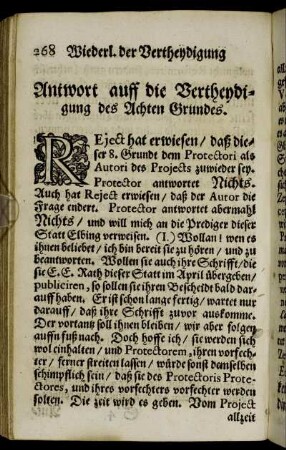 268 Wiederl. der Vertheydigung
Antwort auff die Vertheydi-
gung des Achten Grundes.
REject hat erwiesen / daß die-
ser 8. Grundt dem Protectori als
Autori des Projects zuwieder sey.
Protector antwortet Nichts.
Auch hat Reject erwiesen / daß der Autor die
Frage endert. Protector antwortet abermahl
Nichts / und will mich an die Prediger dieser
Statt Elbing verweisen. (I.) Wollan! wen es
ihnen beliebet / ich bin bereit sie zu hören / und zu
beantworten. Wollen sie auch ihre Schrifft / die
sie E. E. Rath dieser Statt im April übergeben /
publiciren, so sollen sie ihren Bescheidt bald dar-
auff haben. Er ist schon lange fertig / wartet nur
darauff / daß ihre Schrifft zuvor auskomme.
Der vortantz soll ihnen bleiben / wir aber folgen
auff'n fuß nach. Doch hoffe ich / sie werden sich
wol einhalten / und Protectorem, ihren vorfech-
ter / ferner streiten lassen / würde sonst demselben
schimpflich sein / daß sie des Protectoris Prote-
ctores, und ihres vorfechters vorfechter werden
solten. Die zeit wird es geben. Vom Project
allzeit